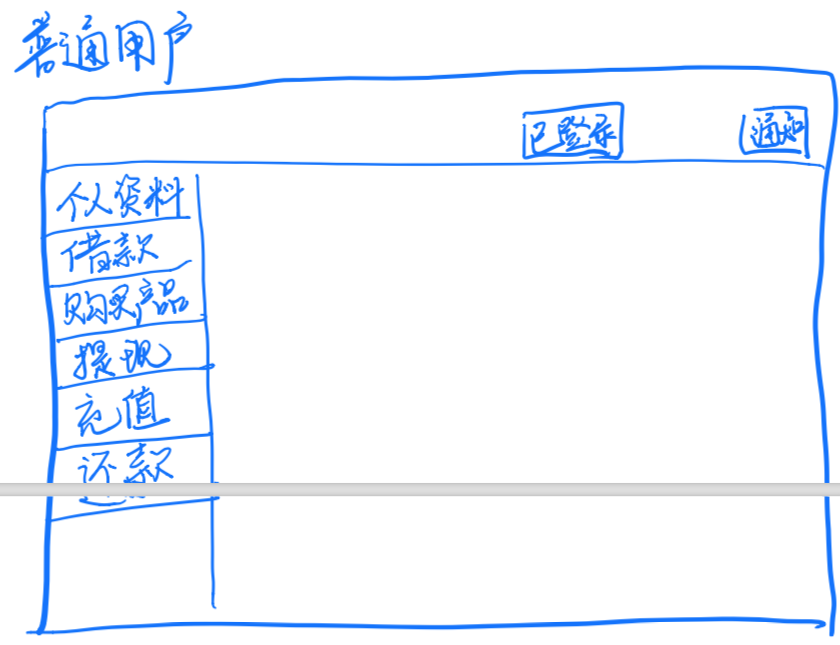 普通用户
已登录 通知
个人资料
借款
购买产品
提现
充值
还款